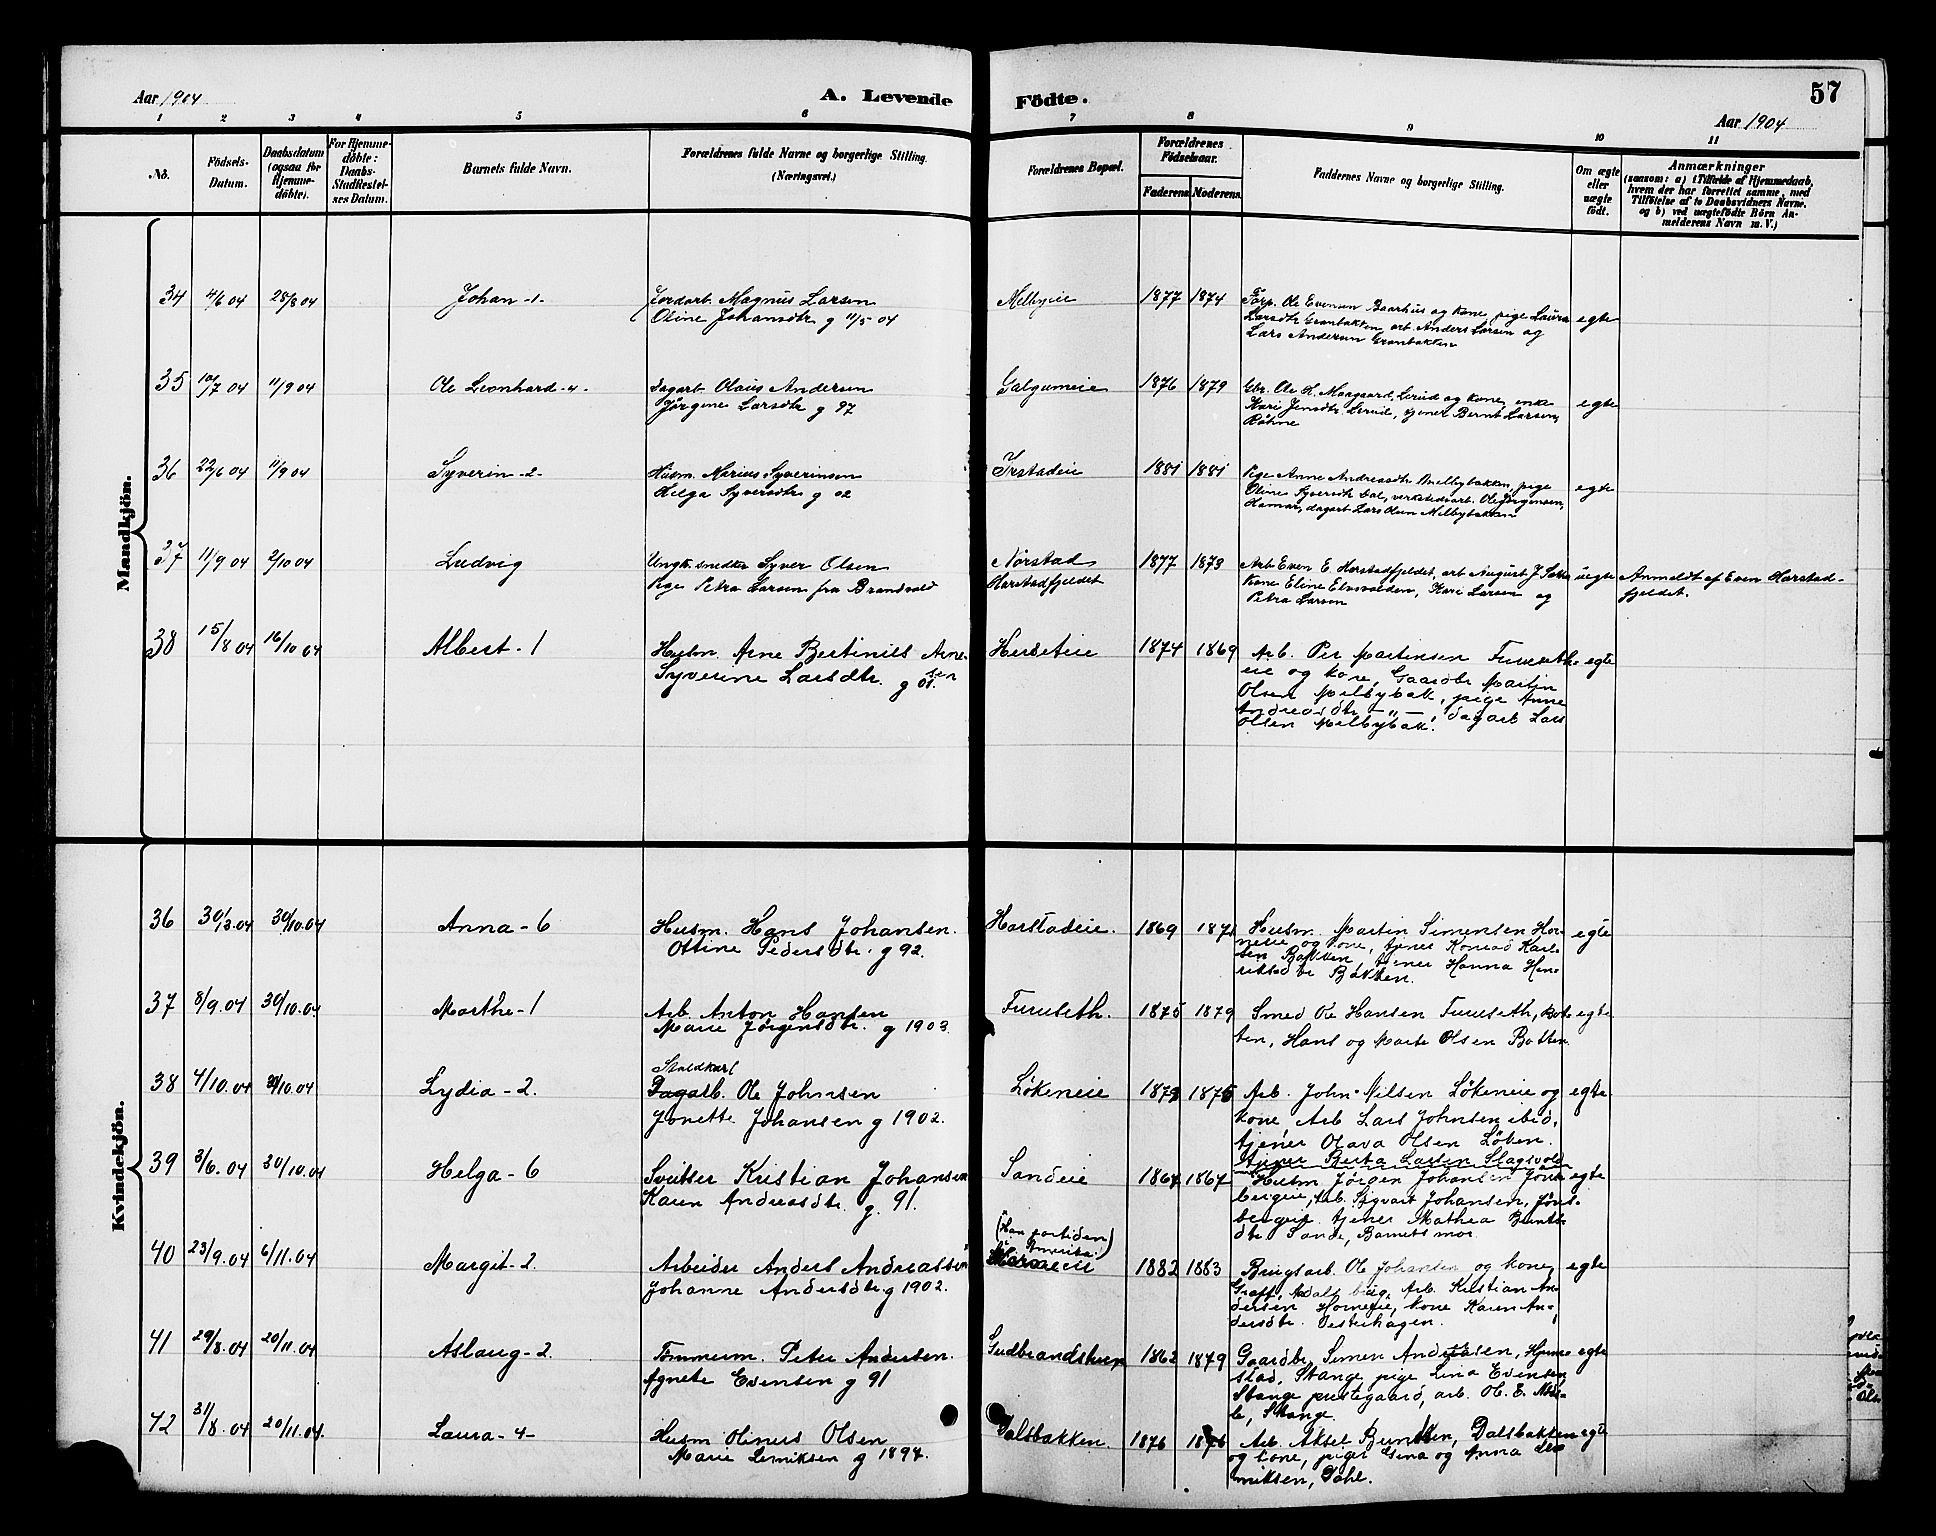 Aar 1904
A. Levende
Födte.
57
Aar 1904
1 2 3 4 5 6 7 8 9 10 11
No.
Födsels-
Datum.
Daabsdatum
(ogsaa for
Hjemme-
döbte).
For Hjemme-
döbte:
Daabs-
Stadfæstel-
ses Datum.
Barnets fulde Navn.
Forældrenes fulde Navne og borgerlige Stilling.
(Næringsvei.)
Forældrenes Bopæl.
Forældrenes
Födselsaar.
Faderens
Moderens.
Faddernes Navne og borgerlige Stilling.
Om ægte
eller
uægte
födt.
Anmærkninger
(saasom: a) i Tilfælde af Hjemmedaab,
hvem der har forrettet samme, med
Tilföielse af to Daabsvidners Navne.
og b) ved uægtefödte Börn An-
melderens Navn m. V.)
Mandkjön.
34 4/6 04 28/8 04 Johan -1-
Jordarb. Magnus Larsen
Oline Johansdtr g 11/5 04
Melbyeie 1877 1874
Forp. Ole Evensen Baarhus og kone, pige Laura
Larsdtr Granbakken, arb. Anders Larsen og
Lars Andersen Granbakken
egte
35 10/7 04 11/9 04 Ole Leonhard -4-
Dagarb. Olaus Andersen
Jørgine Larsdtr g 97
Galgumeie 1876 1879
Gbr. Ole H. Maagaard, Lerud og kone, enke
Kari Jensdtr Lerud, tjener Bernt Larsen,
Røhne
egte
36 22/6 04 11/9 04 Syverin -2-
Husm. Marius Syverinsen
Helga Syversdtr g 02
Irstadeie 1881 1881
Pige Anne Andreasdtr Melbybakken, pige
Oline Syversdtr Dal, verkstedsarb. Ole Jørgensen,
Hamar, dagarb Lars Olsen Melbybakken
egte
37 11/9 04 2/10 04 Ludvig
Ungk. snedker Syver Olsen
Pige Petra Larsen fra Brandvold
Nørstad
Harstadfjeldet
1877 1873
Arb Even E. Harstadfjeldet, arb August J.
kone Eline Elvsvolden, Kari Larsen og
Petra Larsen
uegte
Anmeldt af Even Harstad-
fjeldet.
38 15/8 04 16/10 04 Albert - 1
Husm. Arne Bertinius Arne-
sen
Syverine Larsdtr. g 01.
Herseteie 1874 1869
Arb. Per Martinsen Furuseth-
eie og kone, Gaardbr Martin
Olsen Melbybak, pige Anne
Andreasdtr — " —, dagarb Lars
Olsen Melbybak.
egte
Kvindekjön.
36 30/3.04 30/10.04 Anna - 6
Husm. Hans Johansen.
Ottine Pedersdtr. g 92.
Harstadeie. 1869 1871
Husm. Martin Simensen Hor-
neeie og kone, tjener Konrad Karl-
sen Bakken, tjener Hanna Hen-
riksdtr Bakken.
egte
37 8/9.04 30/10.04 Marthe - 1
Arb. Anton Hansen
Marie Jørgensdtr. g 1903.
Furuseth. 1875 1879
Smed Ole Hansen Furuseth,
Hans og Marte Olsen Botten.
egte
38 4/10.04 30/10.04 Lydia - 2.
Staldkarl
Dagarb. Ole Johnsen
Jonette Johansen g 1902.
Løkeneie 1879 1875
Arb. John Nilsen Løkeneie og
kone, Arb Lars Johnsen ibid,
tjener Olava Olsen Løken.
tjener Berta Larsen Slagsvold
egte
39 3/6.04 30/10.04 Helga - 6
Sveitser Kristian Johansen
Karen Andreasdtr. g. 91.
Sandeie 1864 1867
Husm Jørgen Johansen Jøns-
bergeie, Arb. Sigvart Johansen, Jøns-
bergeie. tjener Mathea Bernts-
dtr Sande, Barnets mor.
egte
40 23/9.04 6/11.04 Margit - 2.
Arbeider Anders Andreassen
Johanne Andersdtr g 1902.
(Han fortiden
i Amerika.)
Horneeie
1882 1883
Brugsarb. Ole Johansen og kone,
Graff, Aadals brug, Arb. Kristian An-
dersen Horneeie, kone Karen An-
dersdtr. Vesterhagen.
egte
41 29/8.04 20/11.04 Aslaug - 2.
Tømmerm. Peter Andersen.
Agnete Evensen g 91
Gudbrandstuen 1862 1879
Gaardbr. Simen Andersen, Hjemm-
stad, Stange, pige Lina Evensen,
Stange prestegaard, arb. Ol. E.
Stange.
egte
42 31/8.04 20/11.04. Laura - 4 -
Husm Olinus Olsen
Marie Lemiksen g 1897.
Dalsbakken. 1876 1876
Arb. Aksel Berntsen, Dalsbakken
og kone, piger Gina og Anna Le-
miksen, Dahl.
egte